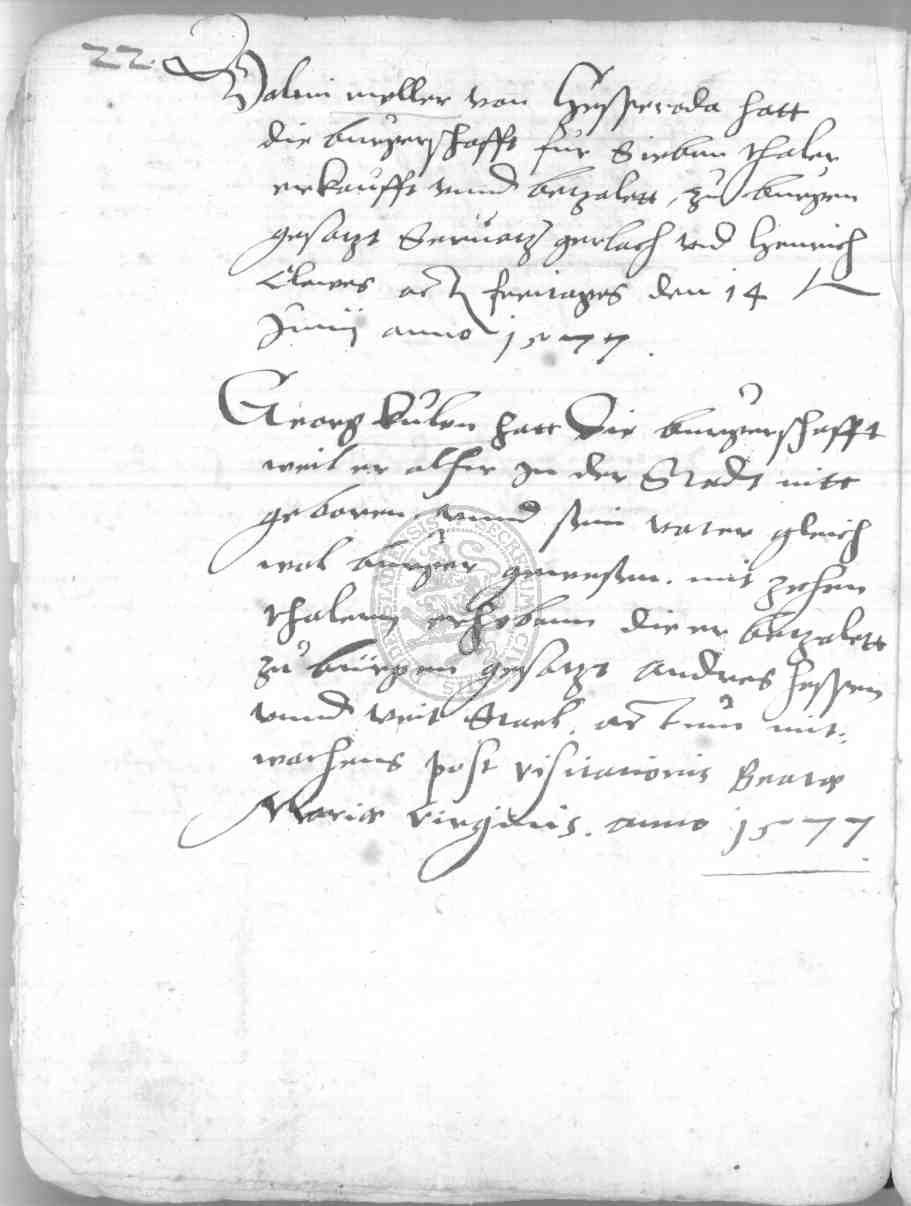 22.
Valtin moller von Hesserode hatt
die burgerschafft fur Sieben thaler
erkaufft unnd betzalett, zu burgen
gesatzt Servatz gerlach und Henrich
Clawes act freitages den 14
Junij anno 1577.
Georg Kulen hatt Die burgerschafft
weil er alhir in der Stadt nitt
geboren, unnd sein vater gleich
wol burger gewesen. mit zehen
thalernn erhebenn die er betzalett
zu burgen gesatzt Andres Hessen
unnd Veit Stael. actum mit,,
wochens post visitationis Beatæ
Mariæ virginis. anno 1577.